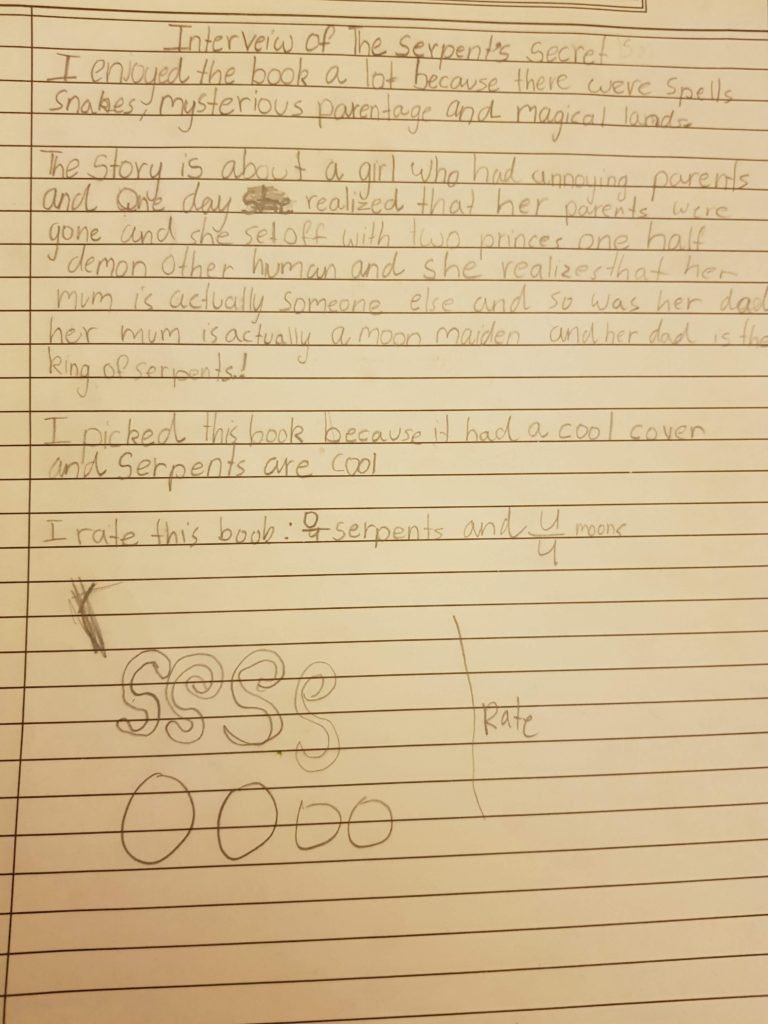 Interveiw of The Serpent's Secret
I enjoyed the book a lot because there were spells
snakes, mysterious parentage and magical lands.
The Story is about a girl who had annoying parents
and One day realized that her parents were
gone and she set off with two princes one half
demon other human and she realizes that her
mum is actually someone else and so was her dad
her mum is actually a moon maiden and her dad is the
king of serpents!
I picked this book because it had a cool cover
and Serpents are cool
I rate this book: serpents and 4/4 moons
Rate